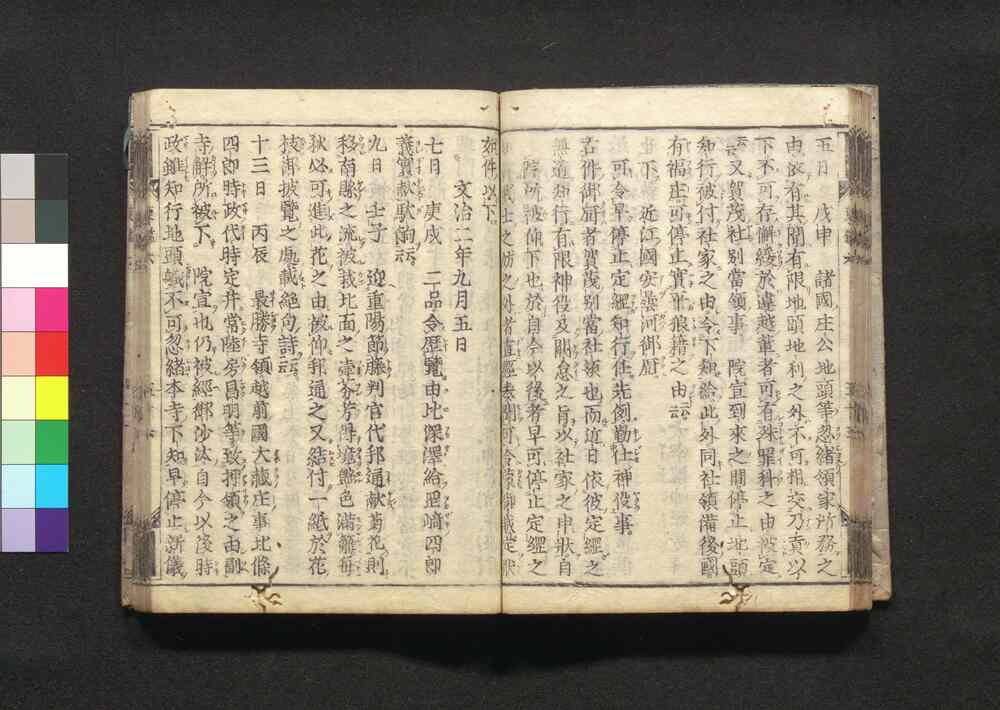 五日 戊申 諸國庄公地頭等忽緒領家所務之
由依有其聞有限地頭地利之外不可相交乃貢以
下不可存懈緩於違越輩者可有殊罪科之由被定
云云又賀茂社別當領事 院宣到來之間停止地頭
知行被付社家之由令下知給此外同社領備後國
有福庄可停止實平狼藉之由云云
下 近江國安曇河御厨
可令早停止定綱知行任先例勤仕神役事
右件御厨者賀茂別當社領也而近日依彼定綱之
無道知行有限神役及闕怠之旨以社家之申狀自
院所被仰下也於自今以後者早可停止定綱之
如件以下
文治二年九月五日
七日 庚戌 二品令歷覽由比深澤給聖崎四郎
義實献駄餉云云
九日 壬子 迎重陽節藤判官代邦通献菊花則
移南縣之流被栽北面之壷芬芳得境艶色滿籬每
秋必可進此花之由被仰邦通之又結付一紙於花
枝御披覽之處載絶句詩云云
十三日 丙辰 最勝寺領越前國大藏庄事北條
四郎時政代時定幷常陸房昌明等致押領之由副
寺解所被下 院宣也仍被經御沙汰自今以後時
政雖知行地頭職不可忽緒本寺下知早停止新儀